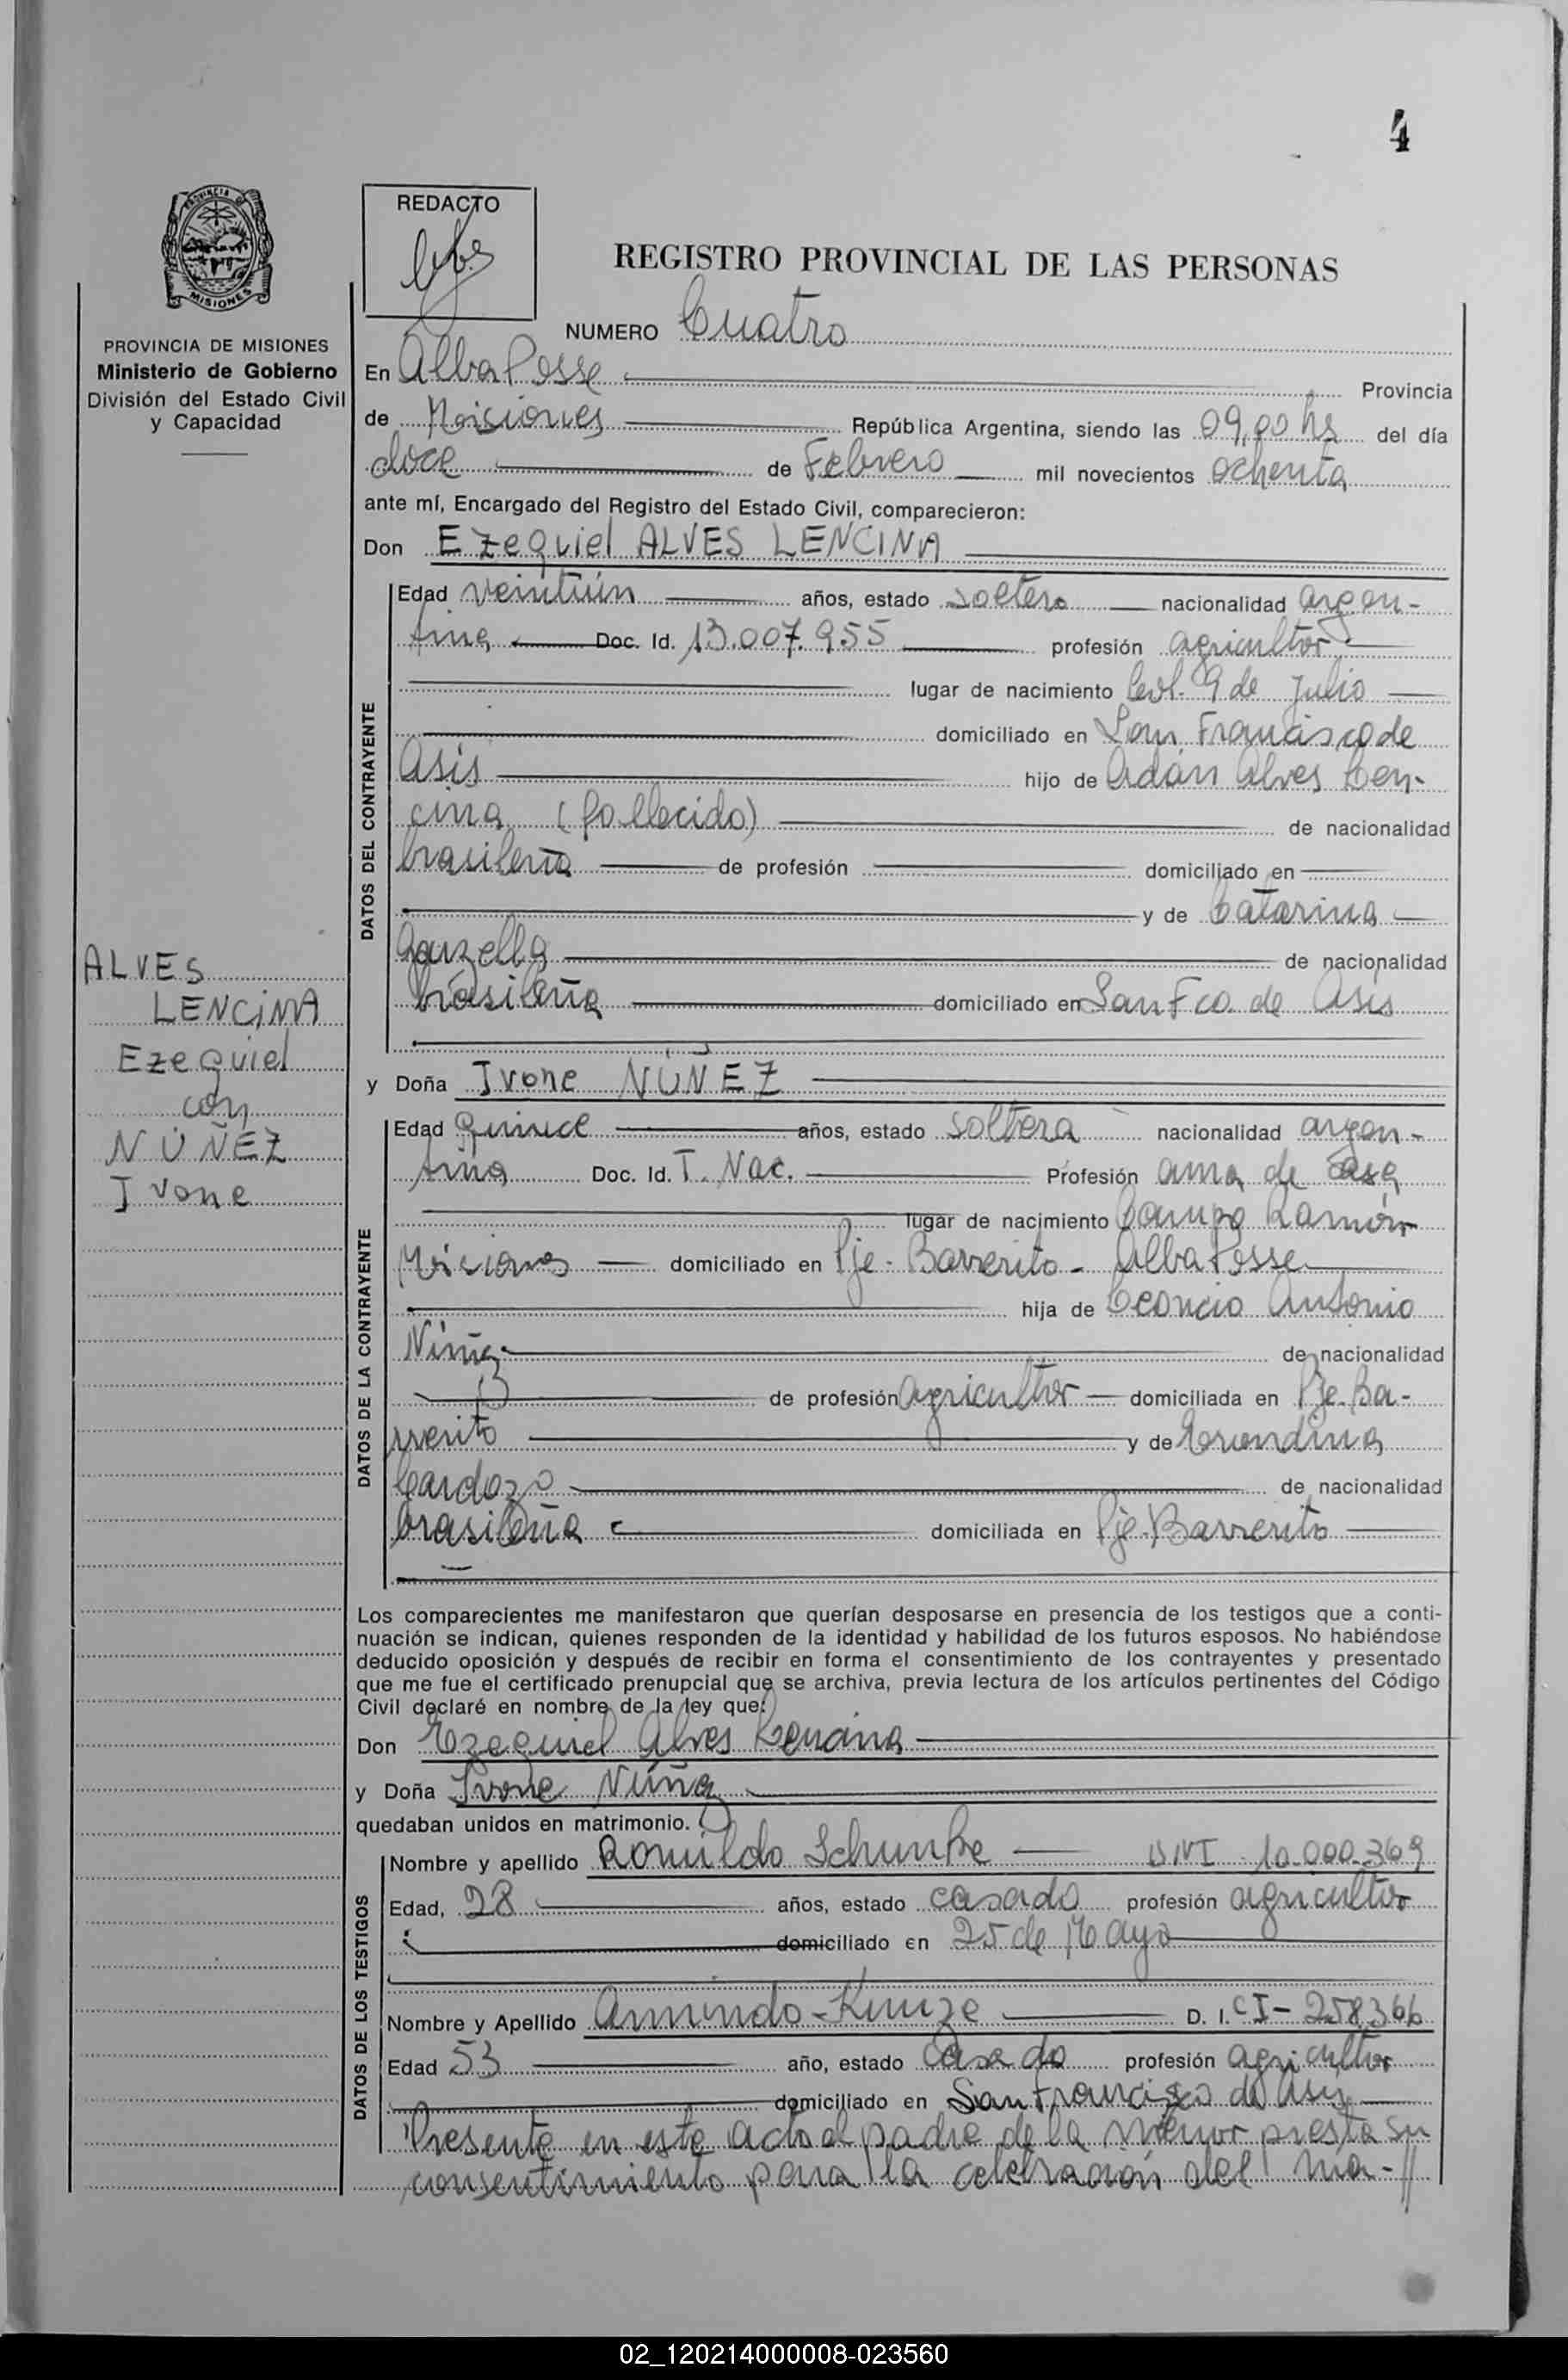 4
PROVINCIA DE MISIONES
REDACTO
REGISTRO PROVINCIAL DE LAS PERSONAS
PROVINCIA DE MISIONES
Ministerio de Gobierno
División del Estado Civil
y Capacidad
NUMERO Cuatro
En Alba Posse Provincia
de Misiones República Argentina, siendo las 09,00 hs del día
doce de Febrero mil novecientos ochenta
ante mí, Encargado del Registro del Estado Civil, comparecieron:
Don Ezequiel ALVES LENCINA
DATOS DEL CONTRAYENTE
Edad veintiún años, estado soltero nacionalidad argen-
tina Doc. Id. 13.007.955 profesión agricultor
lugar de nacimiento Col. 9 de Julio
domiciliado en San Francisco de
Asis hijo de Adán Alves Len-
cina (fallecido) de nacionalidad
brasileña de profesión domiciliado en
y de Catarina
de nacionalidad
brasileña domiciliado en San Fco. de Asis
ALVES
LENCINA
Ezequiel
con
NÚÑEZ
Ivone
y Doña Ivone NÚÑEZ
DATOS DE LA CONTRAYENTE
Edad Quince años, estado soltera nacionalidad argen-
tina Doc. Id. T. Nac. Profesión ama de casa
lugar de nacimiento Campo Ramón
Misiones domiciliado en Pje. Barrerito - Alba Posse
hija de Leoncio Antonio
Núñez de nacionalidad
de profesión agricultor domiciliada en Pje. Ba-
rrerito y de Erondina
Cardozo de nacionalidad
brasileña domiciliada en Pje. Barrerito
Los comparecientes me manifestaron que querían desposarse en presencia de los testigos que a conti-
nuación se indican, quienes responden de la identidad y habilidad de los futuros esposos. No habiéndose
deducido oposición y después de recibir en forma el consentimiento de los contrayentes y presentado
que me fue el certificado prenupcial que se archiva, previa lectura de los artículos pertinentes del Código
Civil declaré en nombre de la ley que:
Don Ezequiel Alves Lencina
y Doña Ivone Núñez
quedaban unidos en matrimonio.
DATOS DE LOS TESTIGOS
Nombre y apellido Romildo Schunke DNI 10.000.369
Edad, 28 años, estado casado profesión agricultor
domiciliado en 25 de Mayo
Nombre y Apellido Armindo Kunze D. I. CI- 258.366
Edad 53 año, estado Casado profesión agricultor
domiciliado en San Francisco de Asis
Presente en este acto el padre de la menor presta su
consentimiento para la celebración del ma-//
02_120214000008-023560